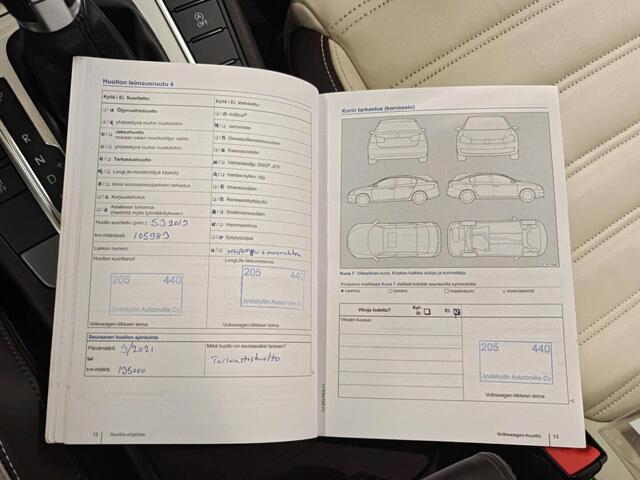 Huollon leimausruutu 4
Kyllä / Ei Suoritettu:
Kyllä / Ei Vaihdettu:
Öljynvaihtohuolto
AdBlue®
yhdistettynä muihin huoltoihin
Jarruneste
Jaksohuolto
mukaan lukien moottoriöljyn vaihto
yhdistettynä muihin huoltoihin
Kaasusuodatin
Tarkastushuolto
Vaihteistoöljy: DSG®, ATF
LongLife-moottoriöljyä käytetty
Haldex-kytkin: öljy
Korin korroosiosuojauksen tarkastus
Ilmansuodatin
Korjauskehotus
Renkaantäyttöpullo
Asiakkaan toivomus
(merkintä myös työmääräykseen)
Sisäilmansuodatin
Hammashihna
Huolto suoritettu (pvm.) 5.9 2019
Sytytystulpat
km-määrässä: 105983
Laskun numero:
Huollon suorittanut:
LongLife-liikkumisturva:
205 440
Jyväskylän Autotarvike Oy
205 440
Jyväskylän Autotarvike Oy
Volkswagen-liikkeen leima
Volkswagen-liikkeen leima
Seuraavan huollon ajankohta
Päivämäärä 9/2021
Mikä huolto on seuraavaksi tarpeen?
tai
Tarkastushuolto
km-määrä 135000
12 Huolto-ohjelma
Korin tarkastus (korroosio)
Kuva 7 Viitteellinen kuva. Koskee kaikkia autoja ja korimalleja.
Korjaamo merkitsee Kuva 7 viivalliset kohdat seuraavilla symboleilla:
× naarmu ○ lommo □ maalivaurio △ kiveniskemä
Vikoja todettu? Kyllä: Ei:
Vikojen kuvaus:
205 440
Jyväskylän Autotarvike Oy
Volkswagen-liikkeen leima
Volkswagen-huolto 13